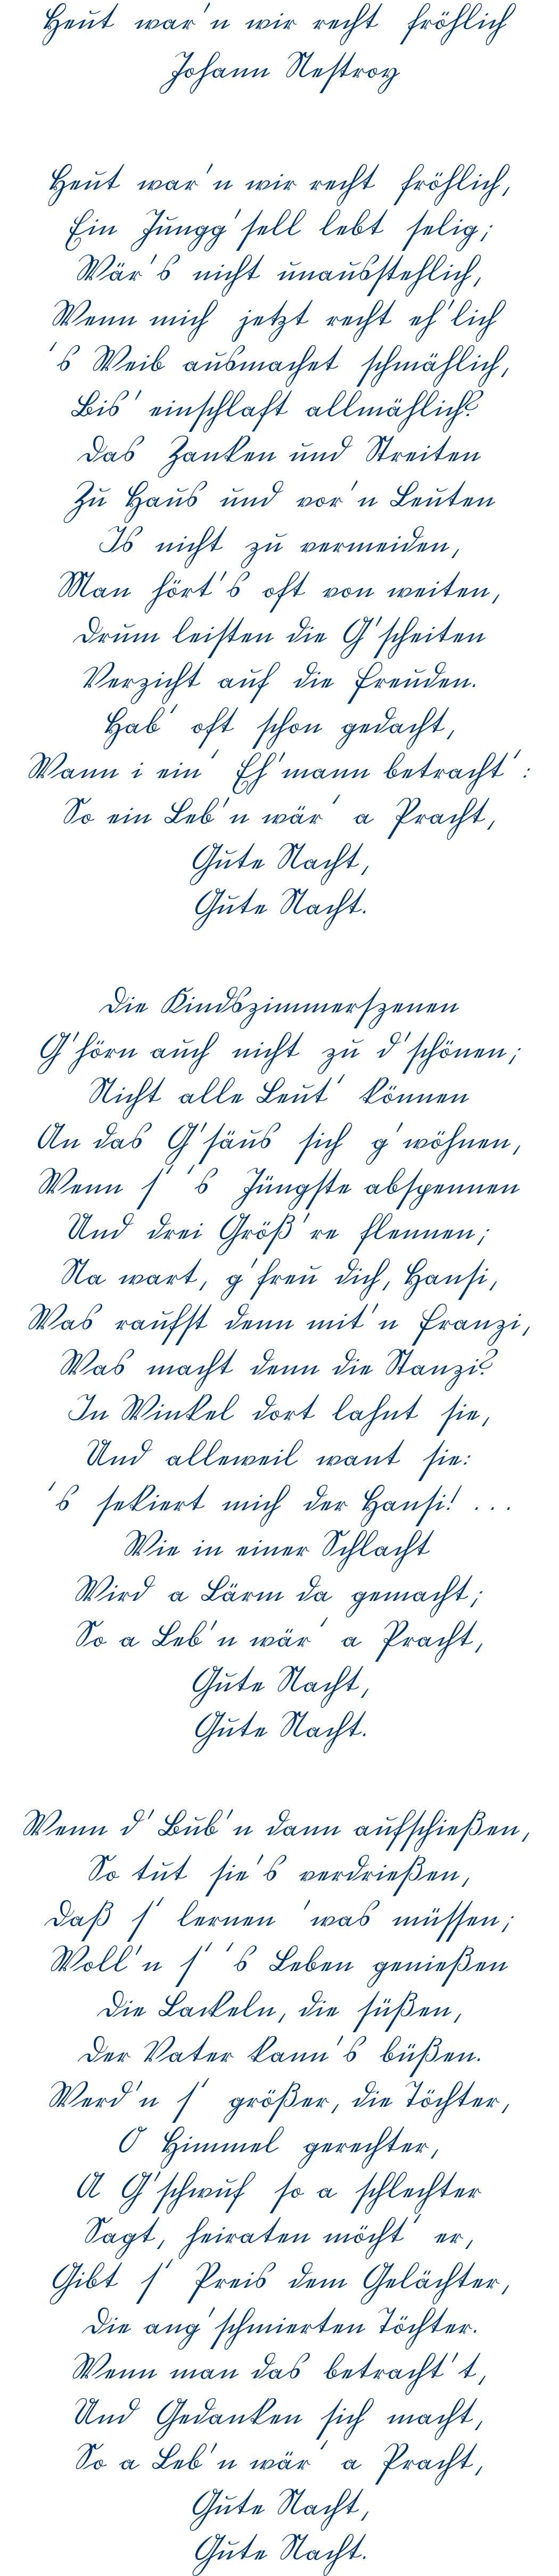 Heut war'n wir recht fröhlich
Johann Nestroy
Heut war'n wir recht fröhlich,
Ein Jungg'sell lebt selig;
Wär's nicht unausstehlich,
Wenn mich jetzt recht eh'lich
's Weib ausmachet schmählich,
Bis' einschlaft allmählich?
Das Zanken und Streiten
Zu Haus und vor'n Leuten
Is nicht zu vermeiden,
Man hört's oft von weiten,
Drum leisten die G'scheiten
Verzicht auf die Freuden.
Hab' oft schon gedacht,
Wann i ein' Eh'mann betracht':
So ein Leb'n wär' a Pracht,
Gute Nacht,
Gute Nacht.
Die Kindszimmerszenen
G'hörn auch nicht zu d'schönen;
Nicht alle Leut' können
An das G'säus sich g'wöhnen,
Wenn s' 's Jüngste abspennen
Und drei Größ're flennen;
Na wart, g'freu dich, Hansi,
Was raufst denn mit'n Franzi,
Was macht denn die Stanzi?
In Winkel dort lahnt sie,
Und alleweil want sie:
's sekiert mich der Hansi! ...
Wie in einer Schlacht
Wird a Lärm da gemacht;
So a Leb'n wär' a Pracht,
Gute Nacht,
Gute Nacht.
Wenn d' Bub'n dann aufschießen,
So tut sie's verdrießen,
Daß s' lernen 'was müssen;
Woll'n s' 's Leben genießen
Die Lackeln, die süßen,
Der Vater kann's büßen.
Werd'n s' größer, die Töchter,
O Himmel gerechter,
A G'schwuf so a schlechter
Sagt, heiraten möcht' er,
Gibt s' Preis dem Gelächter,
Die ang'schmierten Töchter.
Wenn man das betracht't,
Und Gedanken sich macht,
So a Leb'n wär' a Pracht,
Gute Nacht,
Gute Nacht.